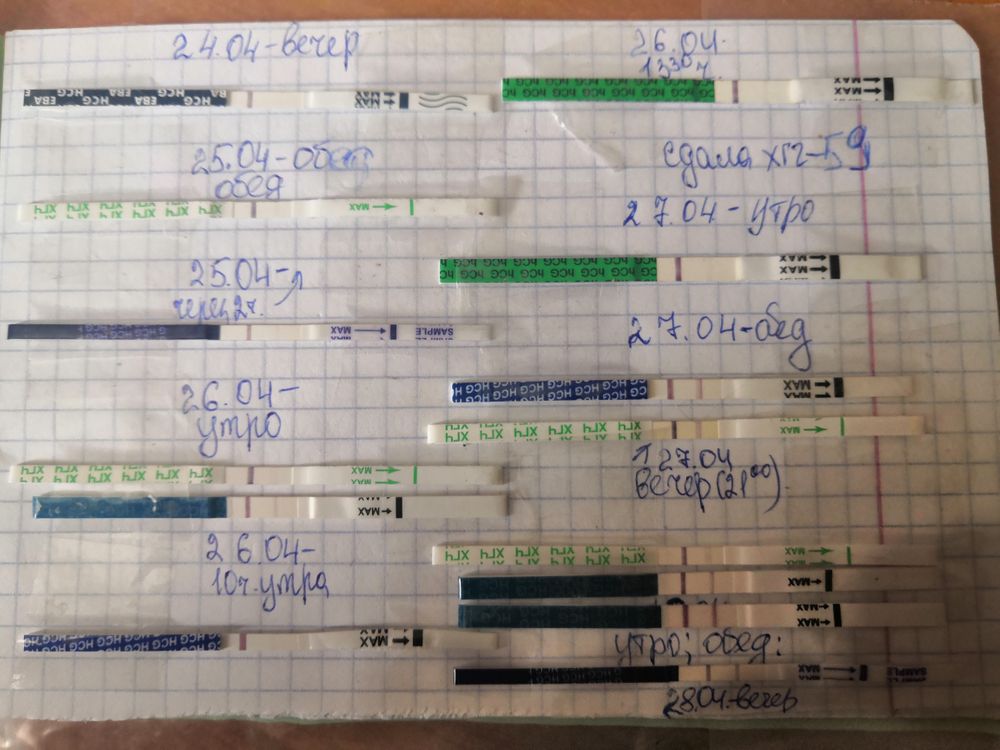 24.04-вечер
HCG EBA HCG EBA HCG EBA
MAX
25.04-обед
обед
ХГЧ ХГЧ ХГЧ ХГЧ ХГЧ ХГЧ
MAX
25.04-
через 2ч.
HCG HCG HCG
MAX SAMPLE
26.04-
утро
ХГЧ ХГЧ ХГЧ ХГЧ ХГЧ ХГЧ
MAX
MAX
26.04-
10ч. утра
HCG HCG HCG HCG HCG HCG
MAX
26.04.
13³⁰ч.
hCG hCG hCG hCG hCG hCG
MAX
сдала хгч-59
27.04-утро
hCG hCG hCG hCG hCG hCG
MAX
27.04-обед
HCG HCG HCG HCG HCG HCG
MAX
ХГЧ ХГЧ ХГЧ ХГЧ ХГЧ ХГЧ
MAX
27.04
вечер (21⁰⁰).
ХГЧ ХГЧ ХГЧ ХГЧ ХГЧ ХГЧ
MAX
MAX
MAX
утро; обед:
HCG HCG HCG
MAX SAMPLE
28.04-вечер